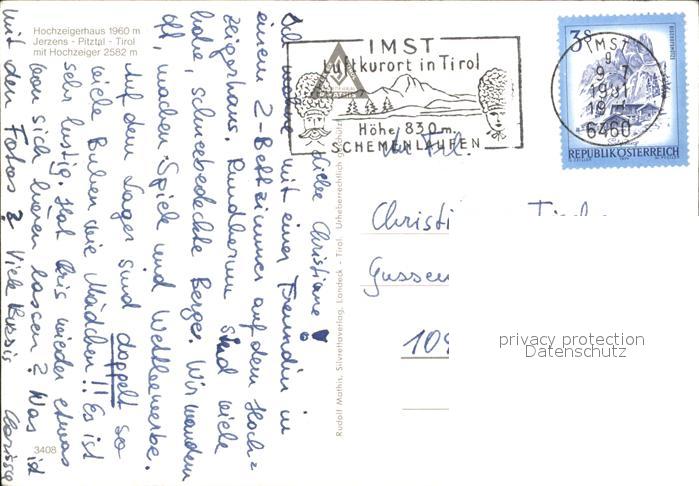 Hochzeigerhaus 1960 m
Jerzens - Pitztal - Tirol
mit Hochzeiger 2582 m
Liebe Christiane!
Ich wohne mit einer Freundin in
einem 2-Bettzimmer auf dem Hoch=
zeigerhaus. Rundherum sind viele
hohe, schneebedeckte Berge. Wir wandern
oft, machen Spiele und Wettbewerbe.
Auf dem Lager sind doppelt so
viele Buben wie Mädchen!! Es ist
sehr lustig. Hat Kris wieder etwas
von sich hören lassen? Was ist
mit den Fotos? Viele Bussis
Clarissa
3408
Rudolf Mathis, Silvrettaverlag, Landeck - Tirol. Urheberrechtlich
IMST
Luftkurort in Tirol
Höhe 830 m
SCHEMENLAUFEN
IMST
9 - 7
1981
6460
3 S
REPUBLIK ÖSTERREICH
Christi
Gussen
109
privacy protection
Datenschutz